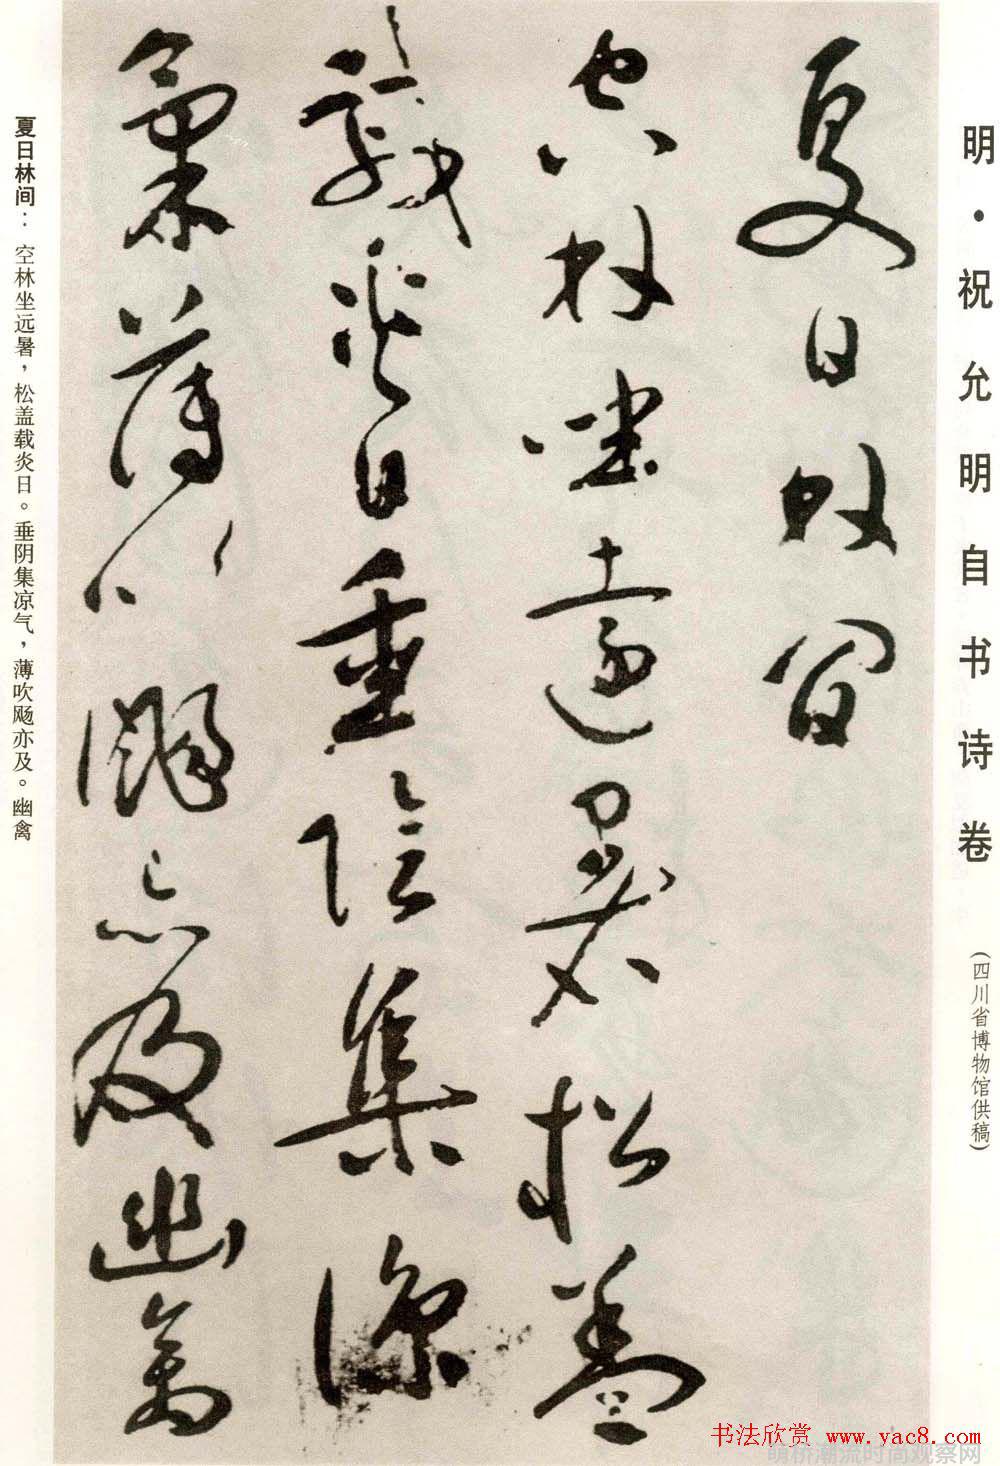 明·祝允明自书诗卷
(四川省博物馆供稿)
夏日林间
空林坐远暑松盖
载炎日垂阴集凉
气薄吹飏亦及幽禽
夏日林间：空林坐远暑，松盖载炎日。垂阴集凉气，薄吹飏亦及。幽禽
书法欣赏 www.yac8.com
萌桥潮流时尚观察网